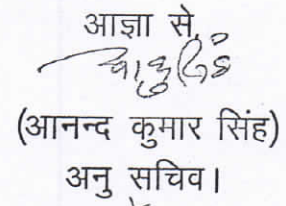 आज्ञा से,
(आनन्द कुमार सिंह)
अनु सचिव।